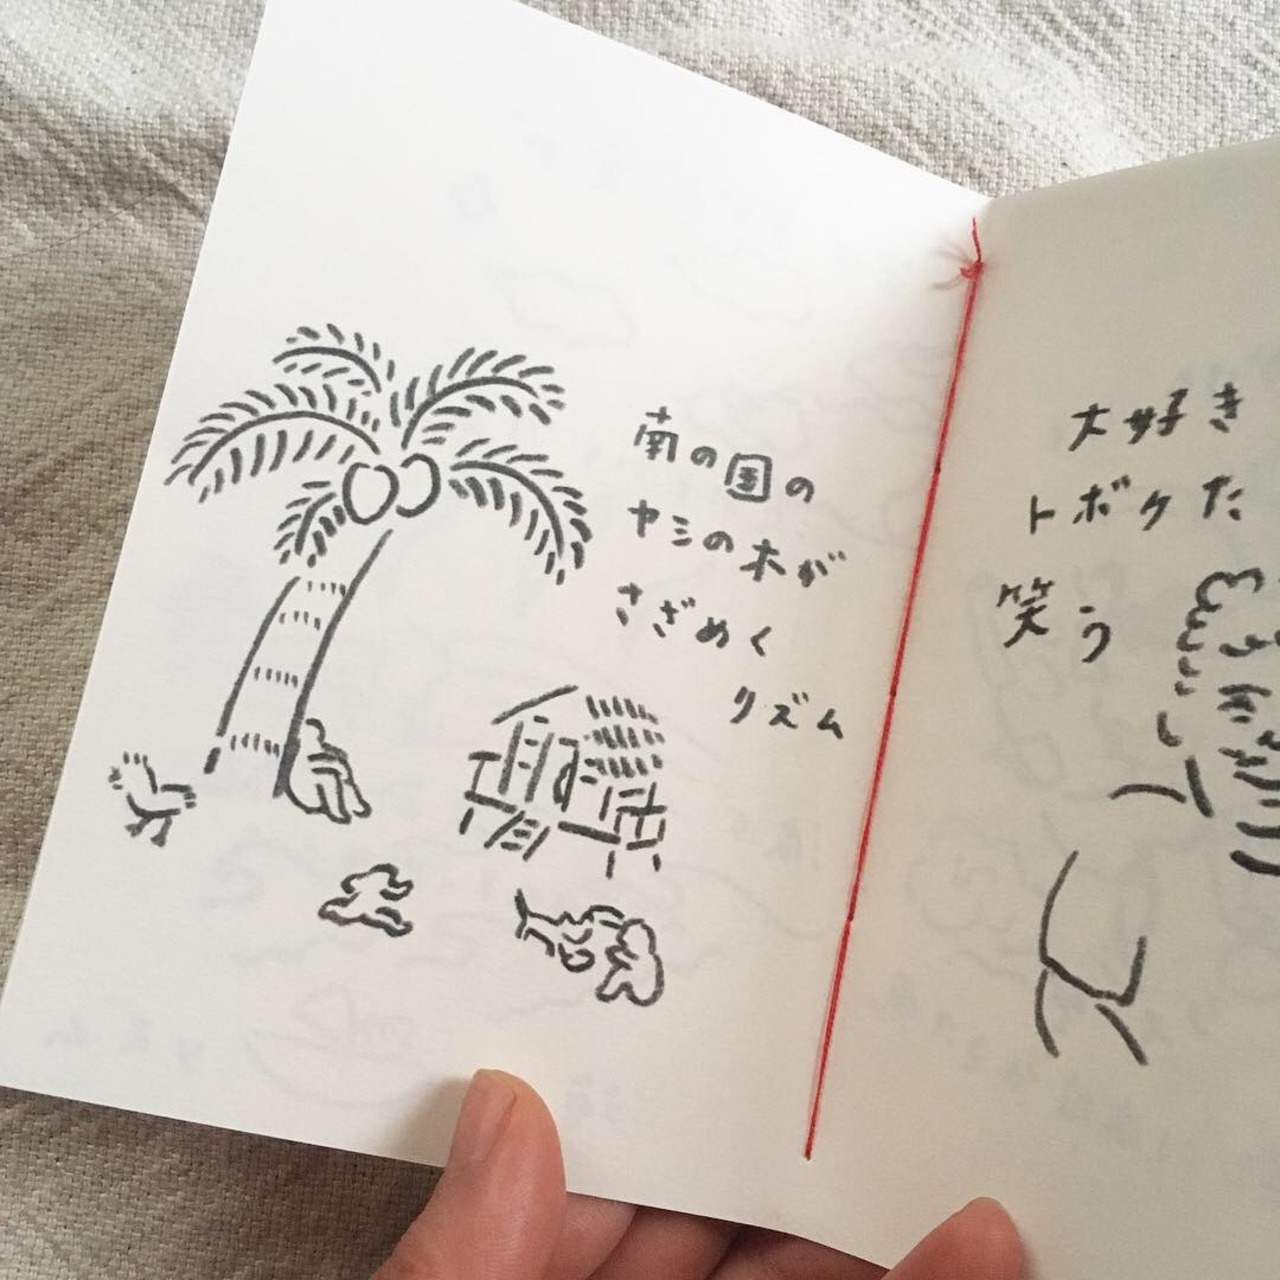 南の国の
ヤシの木が
さざめく
リズム
大好き
トボケた
笑う